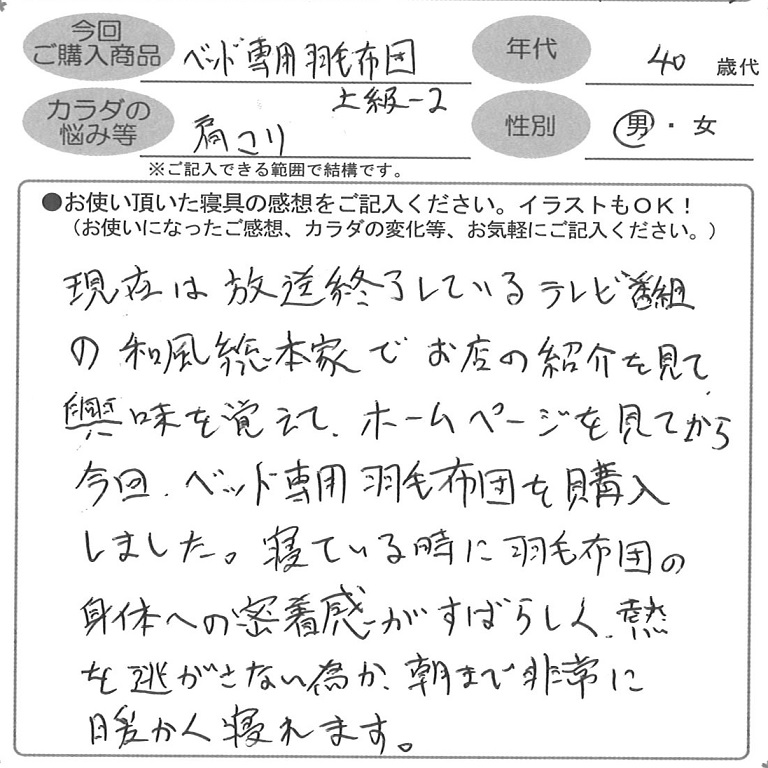 今回
ご購入商品
ベッド専用羽毛布団
上級-2
年代
40 歳代
カラダの
悩み等
肩こり
性別
男・女
※ご記入できる範囲で結構です。
●お使い頂いた寝具の感想をご記入ください。イラストもOK!
(お使いになったご感想、カラダの変化等、お気軽にご記入ください。)
現在は放送終了しているテレビ番組
の和風総本家でお店の紹介を見て
興味を覚えて、ホームページを見てから
今回、ベッド専用羽毛布団を購入
しました。寝ている時に羽毛布団の
身体への密着感がすばらしく、熱
を逃がさない為か、朝まで非常に
暖かく寝れます。